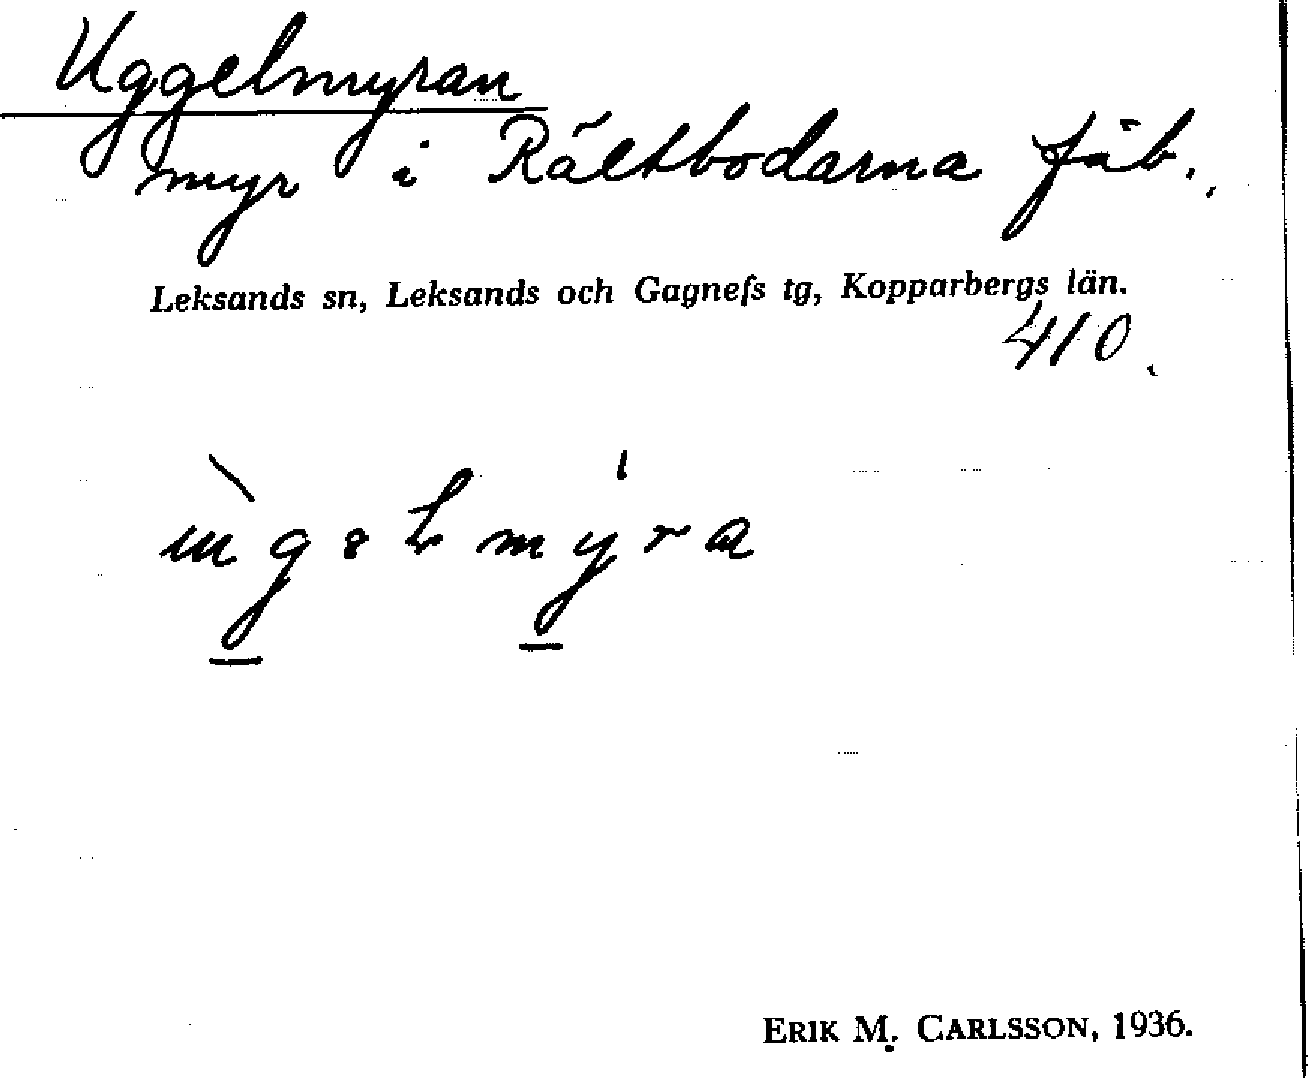 Uggelmyran
myr i Rältbodarna fäb.
Leksands sn, Leksands och Gagnefs tg, Kopparbergs län.
410.
ERIK M. CARLSSON, 1936.